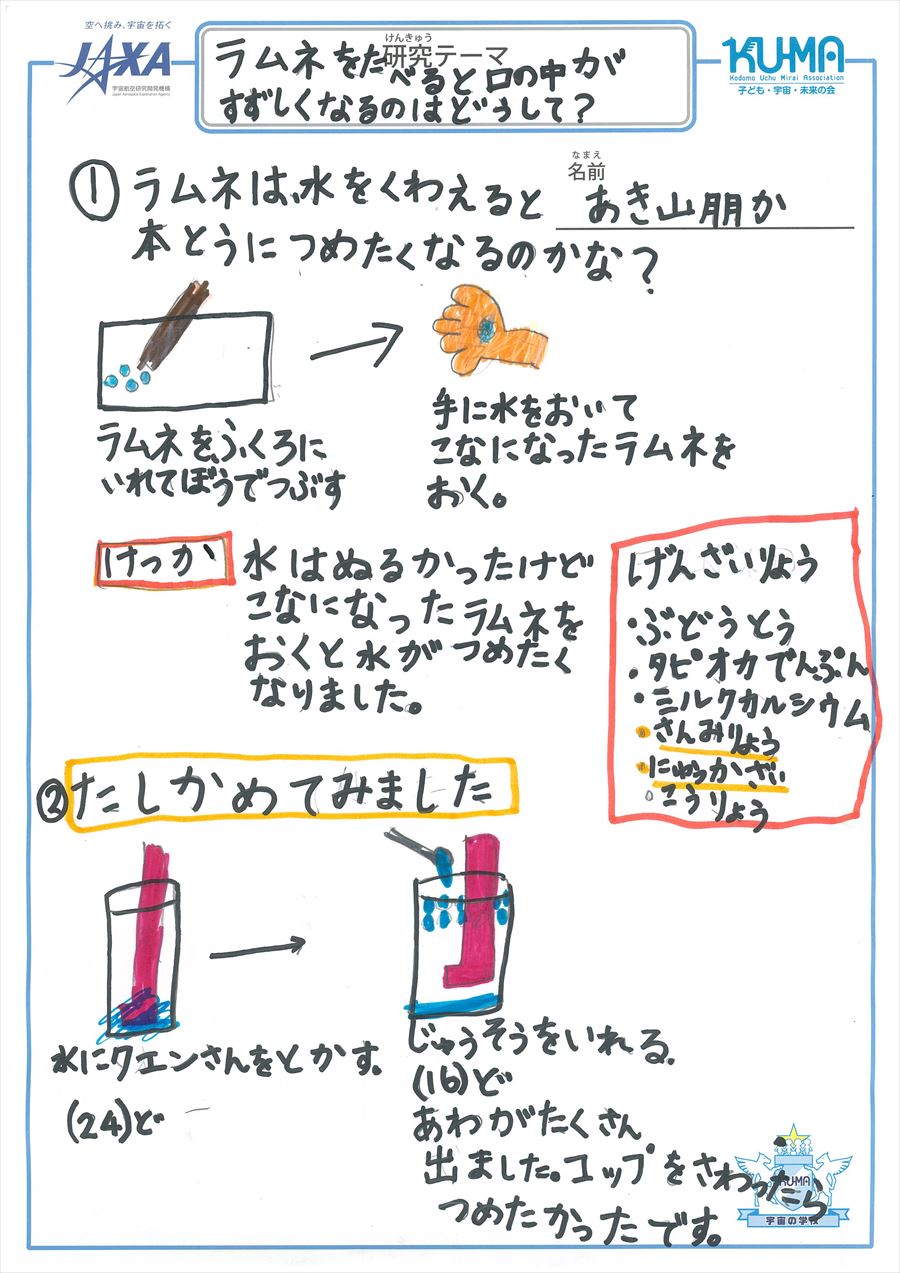 空へ挑み、宇宙を拓く
JAXA
宇宙航空研究開発機構
Japan Aerospace Exploration Agency
けんきゅう
研究テーマ
ラムネをたべると口の中が
すずしくなるのはどうして?
KU-MA
Kodomo Uchu Mirai Association
子ども・宇宙・未来の会
なまえ
名前
あき山朋か
① ラムネは、水をくわえると
本とうにつめたくなるのかな?
ラムネをふくろに
いれてぼうでつぶす
手に水をおいて
こなになったラムネを
おく。
けっか
水はぬるかったけど
こなになったラムネを
おくと水がつめたく
なりました。
げんざいりょう
・ぶどうとう
・タピオカでんぷん
・ミルクカルシウム
・さんみりょう
・にゅうかざい
・こうりょう
② たしかめてみました
水にクエンさんをとかす。
(24)ど
じゅうそうをいれる.
(16)ど
あわがたくさん
出ました。コップをさわったら
つめたかったです。
KU-MA
宇宙の学校